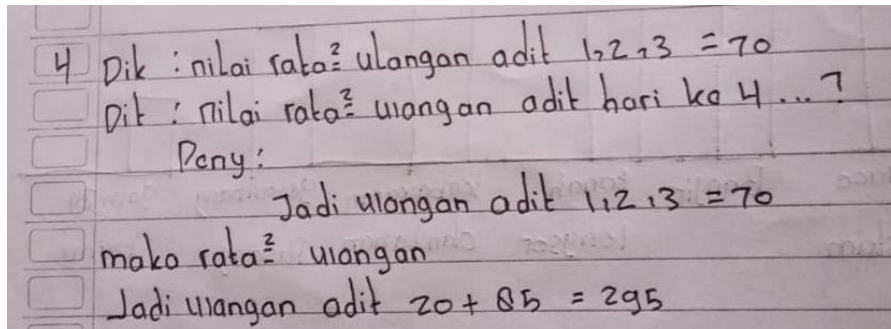 4 Dik : nilai rata² ulangan adit 1,2,3 = 70
Dit : nilai rata² ulangan adit hari ke 4 ... ?
Peny :
Jadi ulangan adit 1,2,3 = 70
maka rata² ulangan
Jadi ulangan adit 20 + 85 = 295